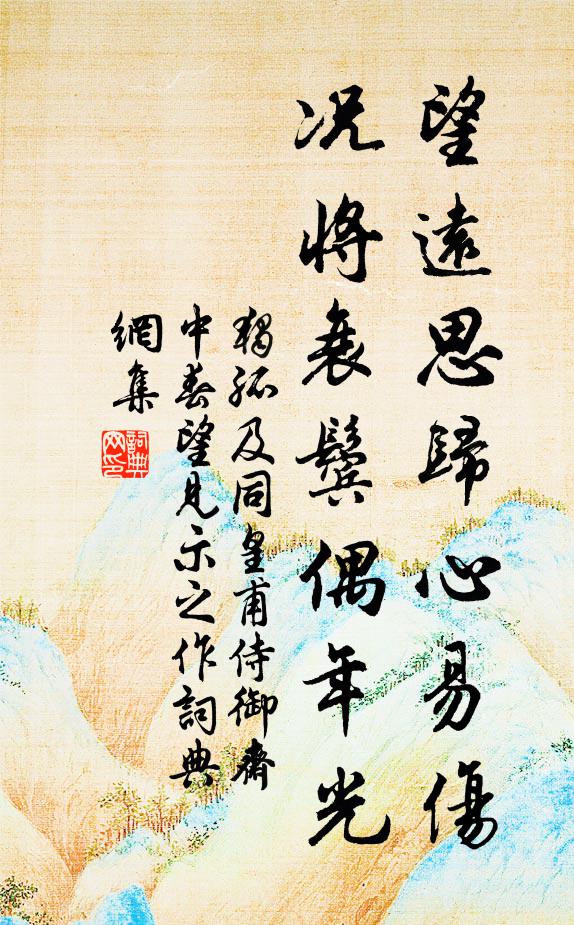 望遠思歸心易傷
况將衰鬢偶年光
獨孤及同皇甫侍御齋
中春望見示之作詞典
網集
詞典
网印